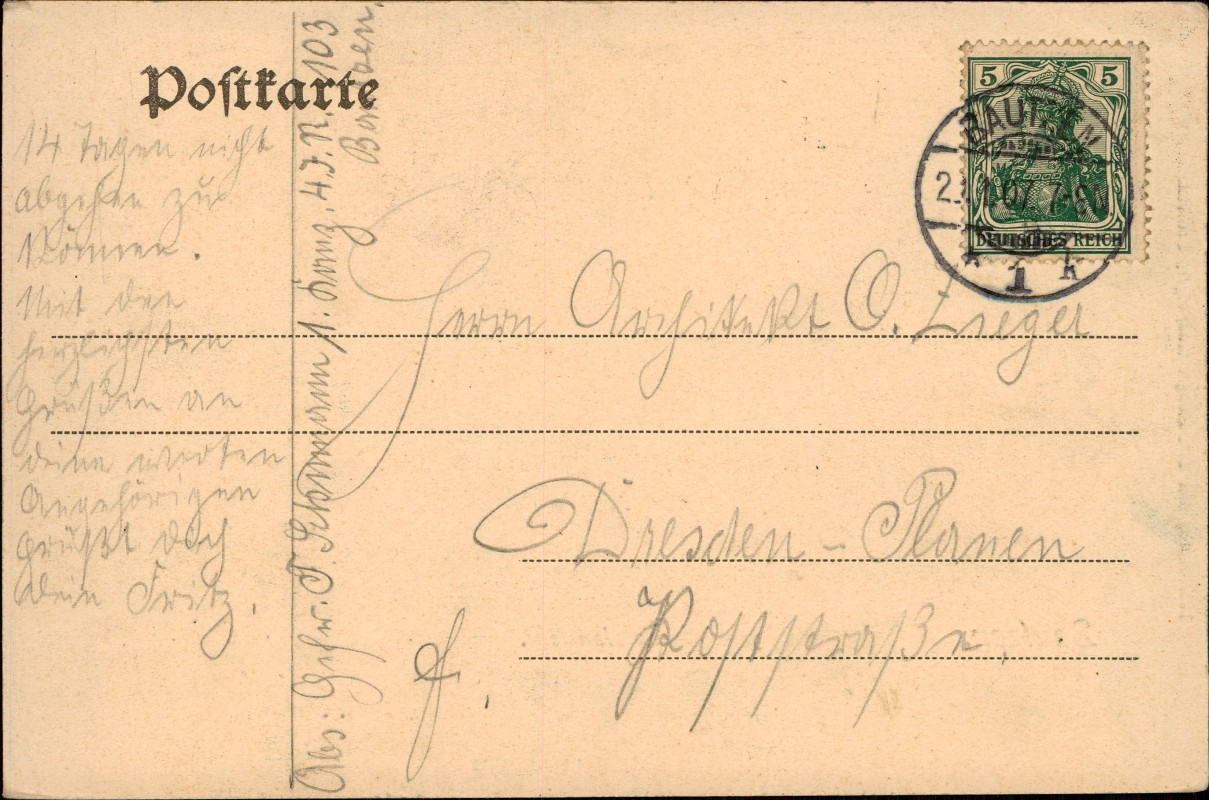 Postkarte
14 Tagen nicht
abgehen zu
können.
Mit den
herzlichsten
Grüßen an
deine werten
Angehörigen
grüßt dich
dein Fritz.
Abs: Gefr. F. 1. Komp. 4. J. R. 103
Bautzen.
5 5
DEUTSCHES REICH
BAUTZEN
07. 7-8N
* 1 k
Herrn Architekt O.
Dresden - Plauen
Poststraße.